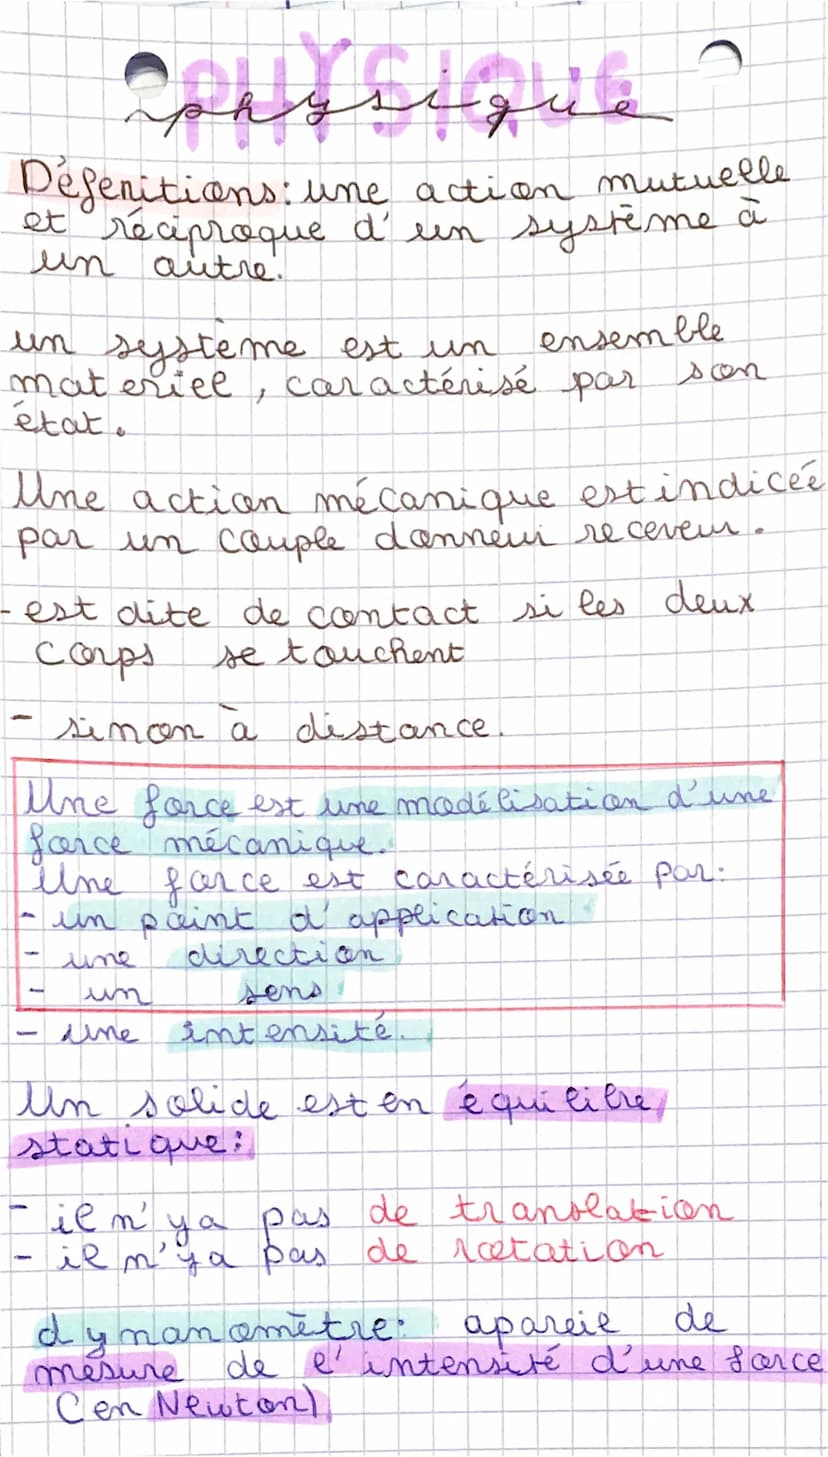 PHYSIQUE
physique
Défenitions: une action mutuelle
et réciproque d'un système à
un autre.
un système est un ensemble
materiel, caractérisé par son
état.
Une action mécanique est indicée
par un couple donneur receveur.
- est dite de contact si les deux
corps se touchent
- sinon à distance.
Une force est une modélisation d'une
force mécanique.
Une force est caractérisée par:
- un point d'application
- une direction
- un sens
- une intensité.
Un solide est en équilibre
statique:
- il n'ya pas de translation
- il n'ya pas de rotation
dymanomètre: apareil de
mesure de l'intensité d'une force
(en Newton)